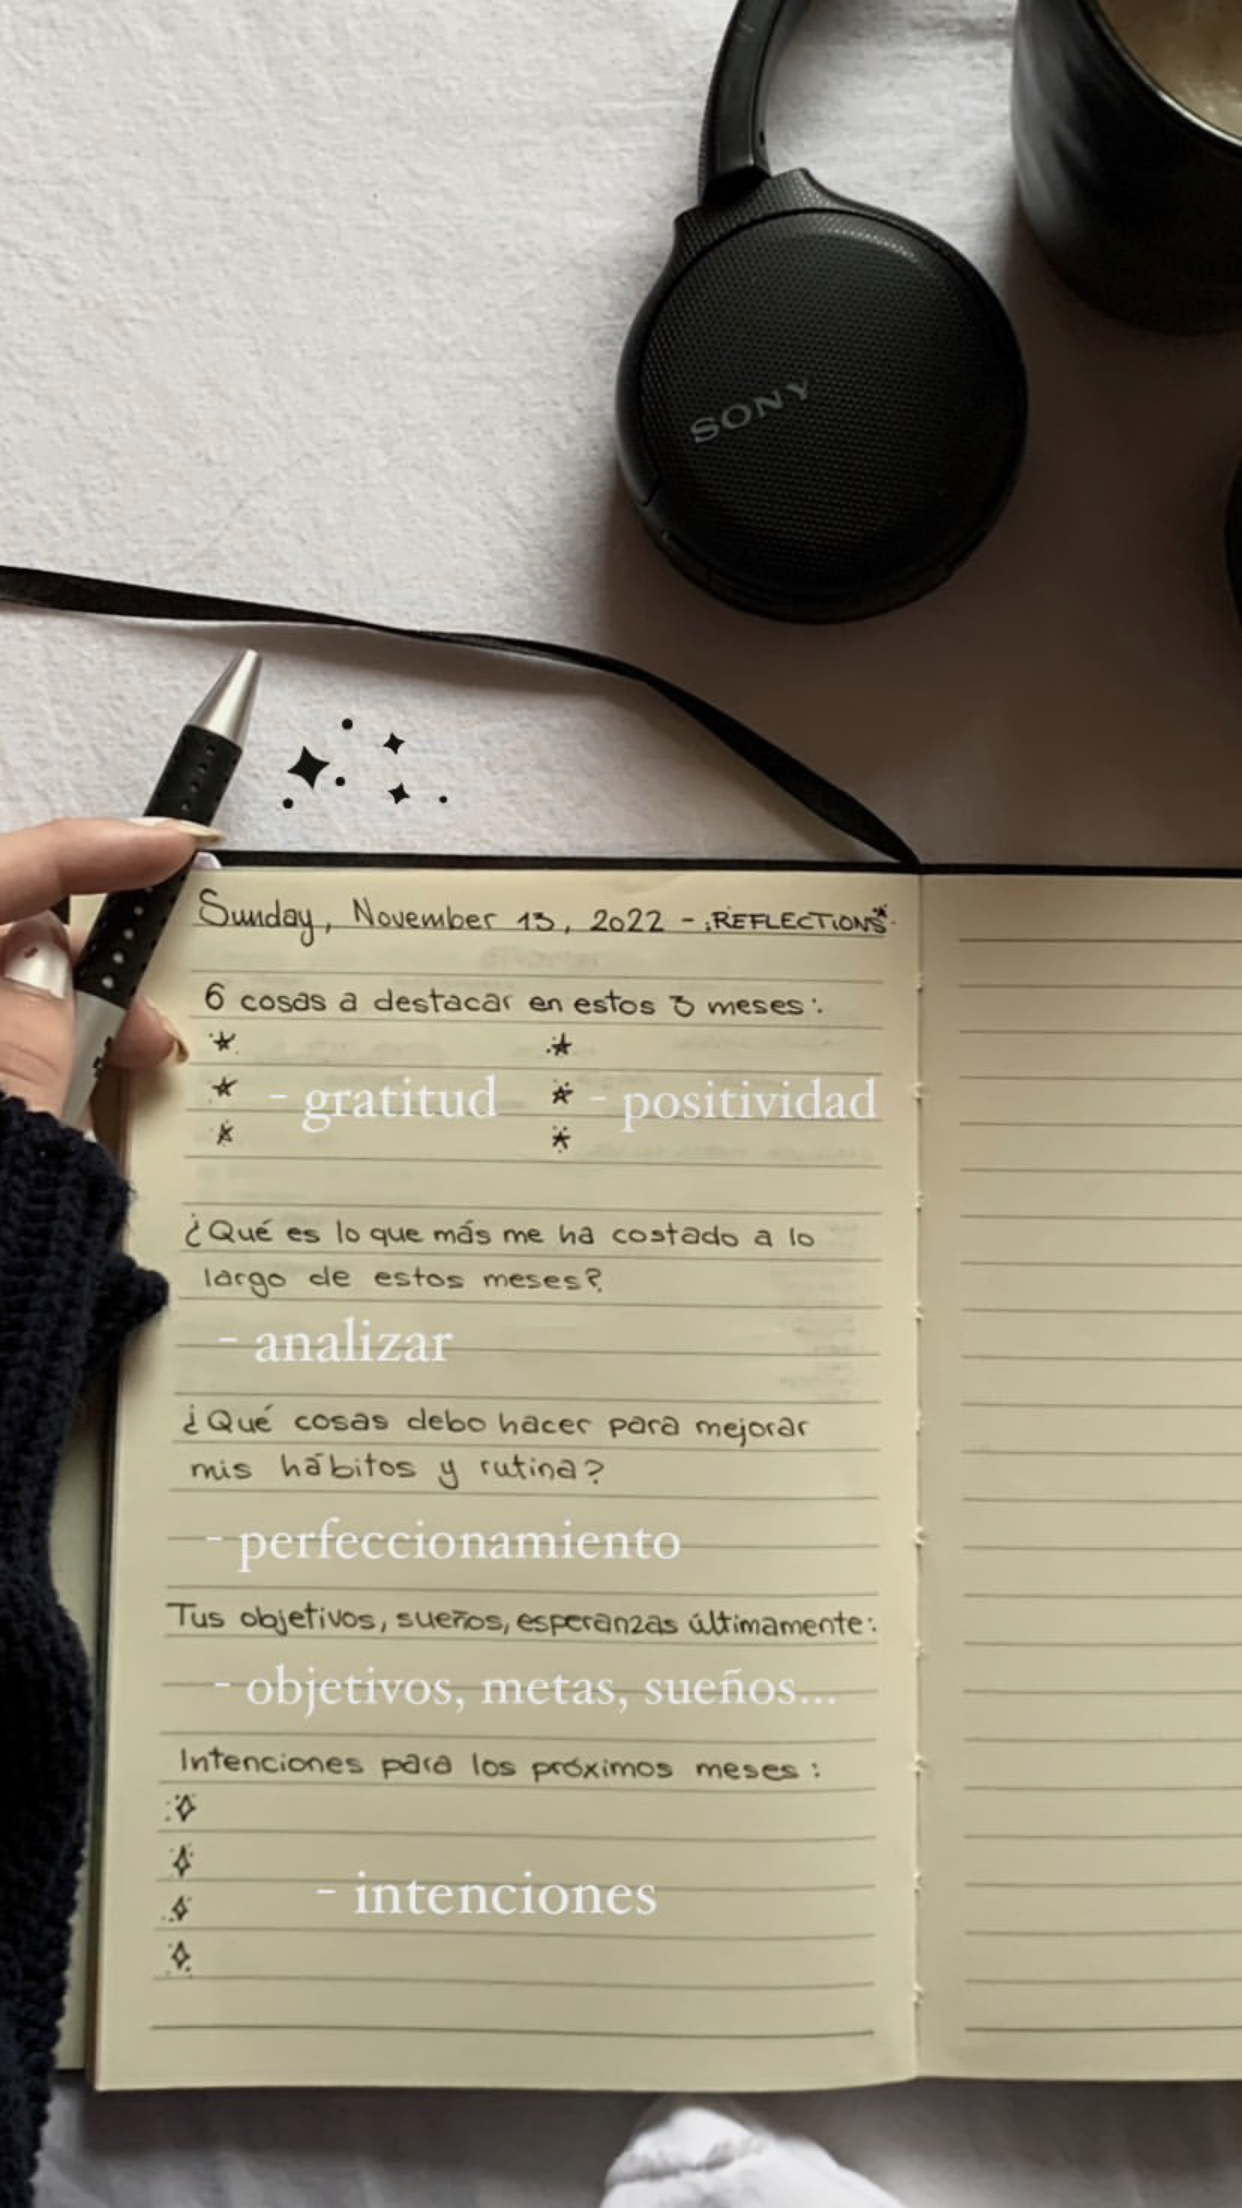 SONY
Sunday, November 13, 2022 - REFLECTIONS
6 cosas a destacar en estos 3 meses:
- gratitud - positividad
¿Qué es lo que más me ha costado a lo
largo de estos meses?
- analizar
¿Qué cosas debo hacer para mejorar
mis hábitos y rutina?
- perfeccionamiento
Tus objetivos, sueños, esperanzas últimamente:
- objetivos, metas, sueños...
Intenciones para los próximos meses:
- intenciones